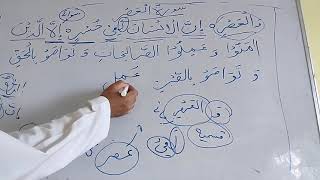 سورة العصر
وَالْعَصْرِ إِنَّ الْإِنْسَانَ لَفِي خُسْرٍ إِلَّا الَّذِينَ
آمَنُوا وَعَمِلُوا الصَّالِحَاتِ وَتَوَاصَوْا بِالْحَقِّ
وَتَوَاصَوْا بِالصَّبْرِ
عمل
و العصر
قسمية
عصر